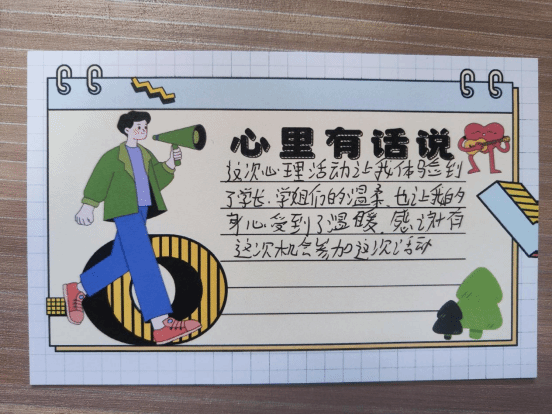 心里有话说
这次心理活动让我体验到
了学长、学姐们的温柔,也让我的
身心受到了温暖,感谢有
这次机会参加这次活动